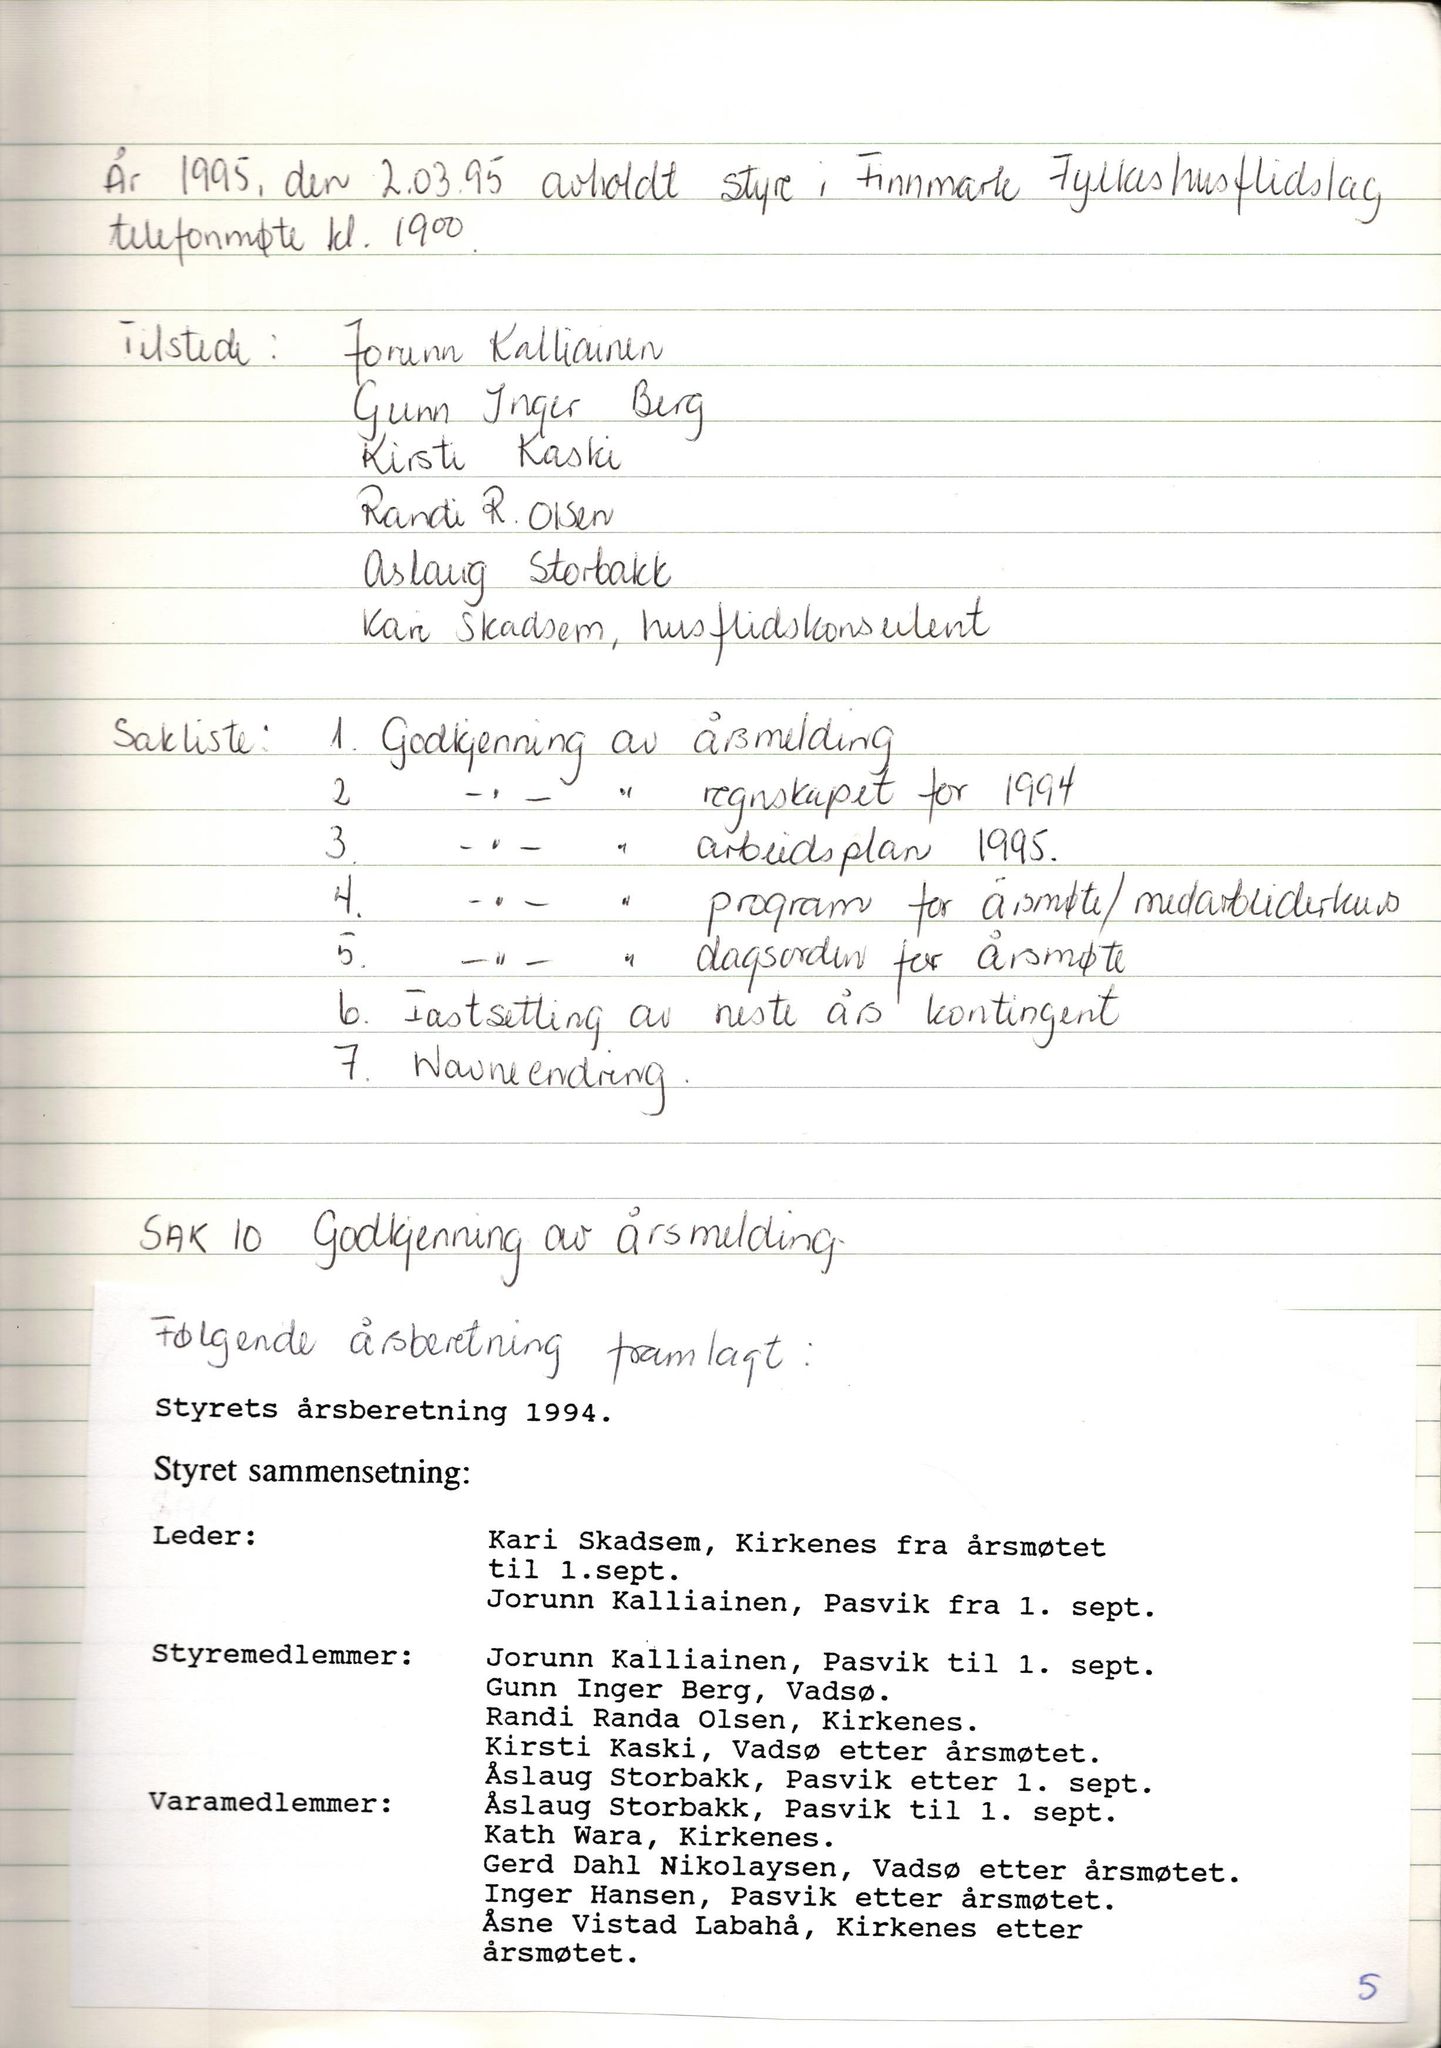 År 1995, den 2.03.95 avholdt styre i Finnmark Fylkeshusflidslag
telefonmøte kl. 19⁰⁰.
Tilstede: Jorunn Kalliainen
Gunn Inger Berg
Kirsti Kaski
Randi R. Olsen
Aslaug Storbakk
Kari Skadsem, husflidskonsulent
Sakliste: 1. Godkjenning av årsmelding
2 - " - " regnskapet for 1994
3. - " - " arbeidsplan 1995.
4. - " - " program for årsmøte/medarbeiderkurs
5. - " - " dagsorden for årsmøte
6. Fastsetting av neste års kontingent
7. Navneendring.
SAK 10 Godkjenning av årsmelding.
Følgende årsberetning framlagt:
Styrets årsberetning 1994.
Styret sammensetning:
Leder: Kari Skadsem, Kirkenes fra årsmøtet
til 1.sept.
Jorunn Kalliainen, Pasvik fra 1. sept.
Styremedlemmer: Jorunn Kalliainen, Pasvik til 1. sept.
Gunn Inger Berg, Vadsø.
Randi Randa Olsen, Kirkenes.
Kirsti Kaski, Vadsø etter årsmøtet.
Åslaug Storbakk, Pasvik etter 1. sept.
Varamedlemmer: Åslaug Storbakk, Pasvik til 1. sept.
Kath Wara, Kirkenes.
Gerd Dahl Nikolaysen, Vadsø etter årsmøtet.
Inger Hansen, Pasvik etter årsmøtet.
Åsne Vistad Labahå, Kirkenes etter
årsmøtet.
5